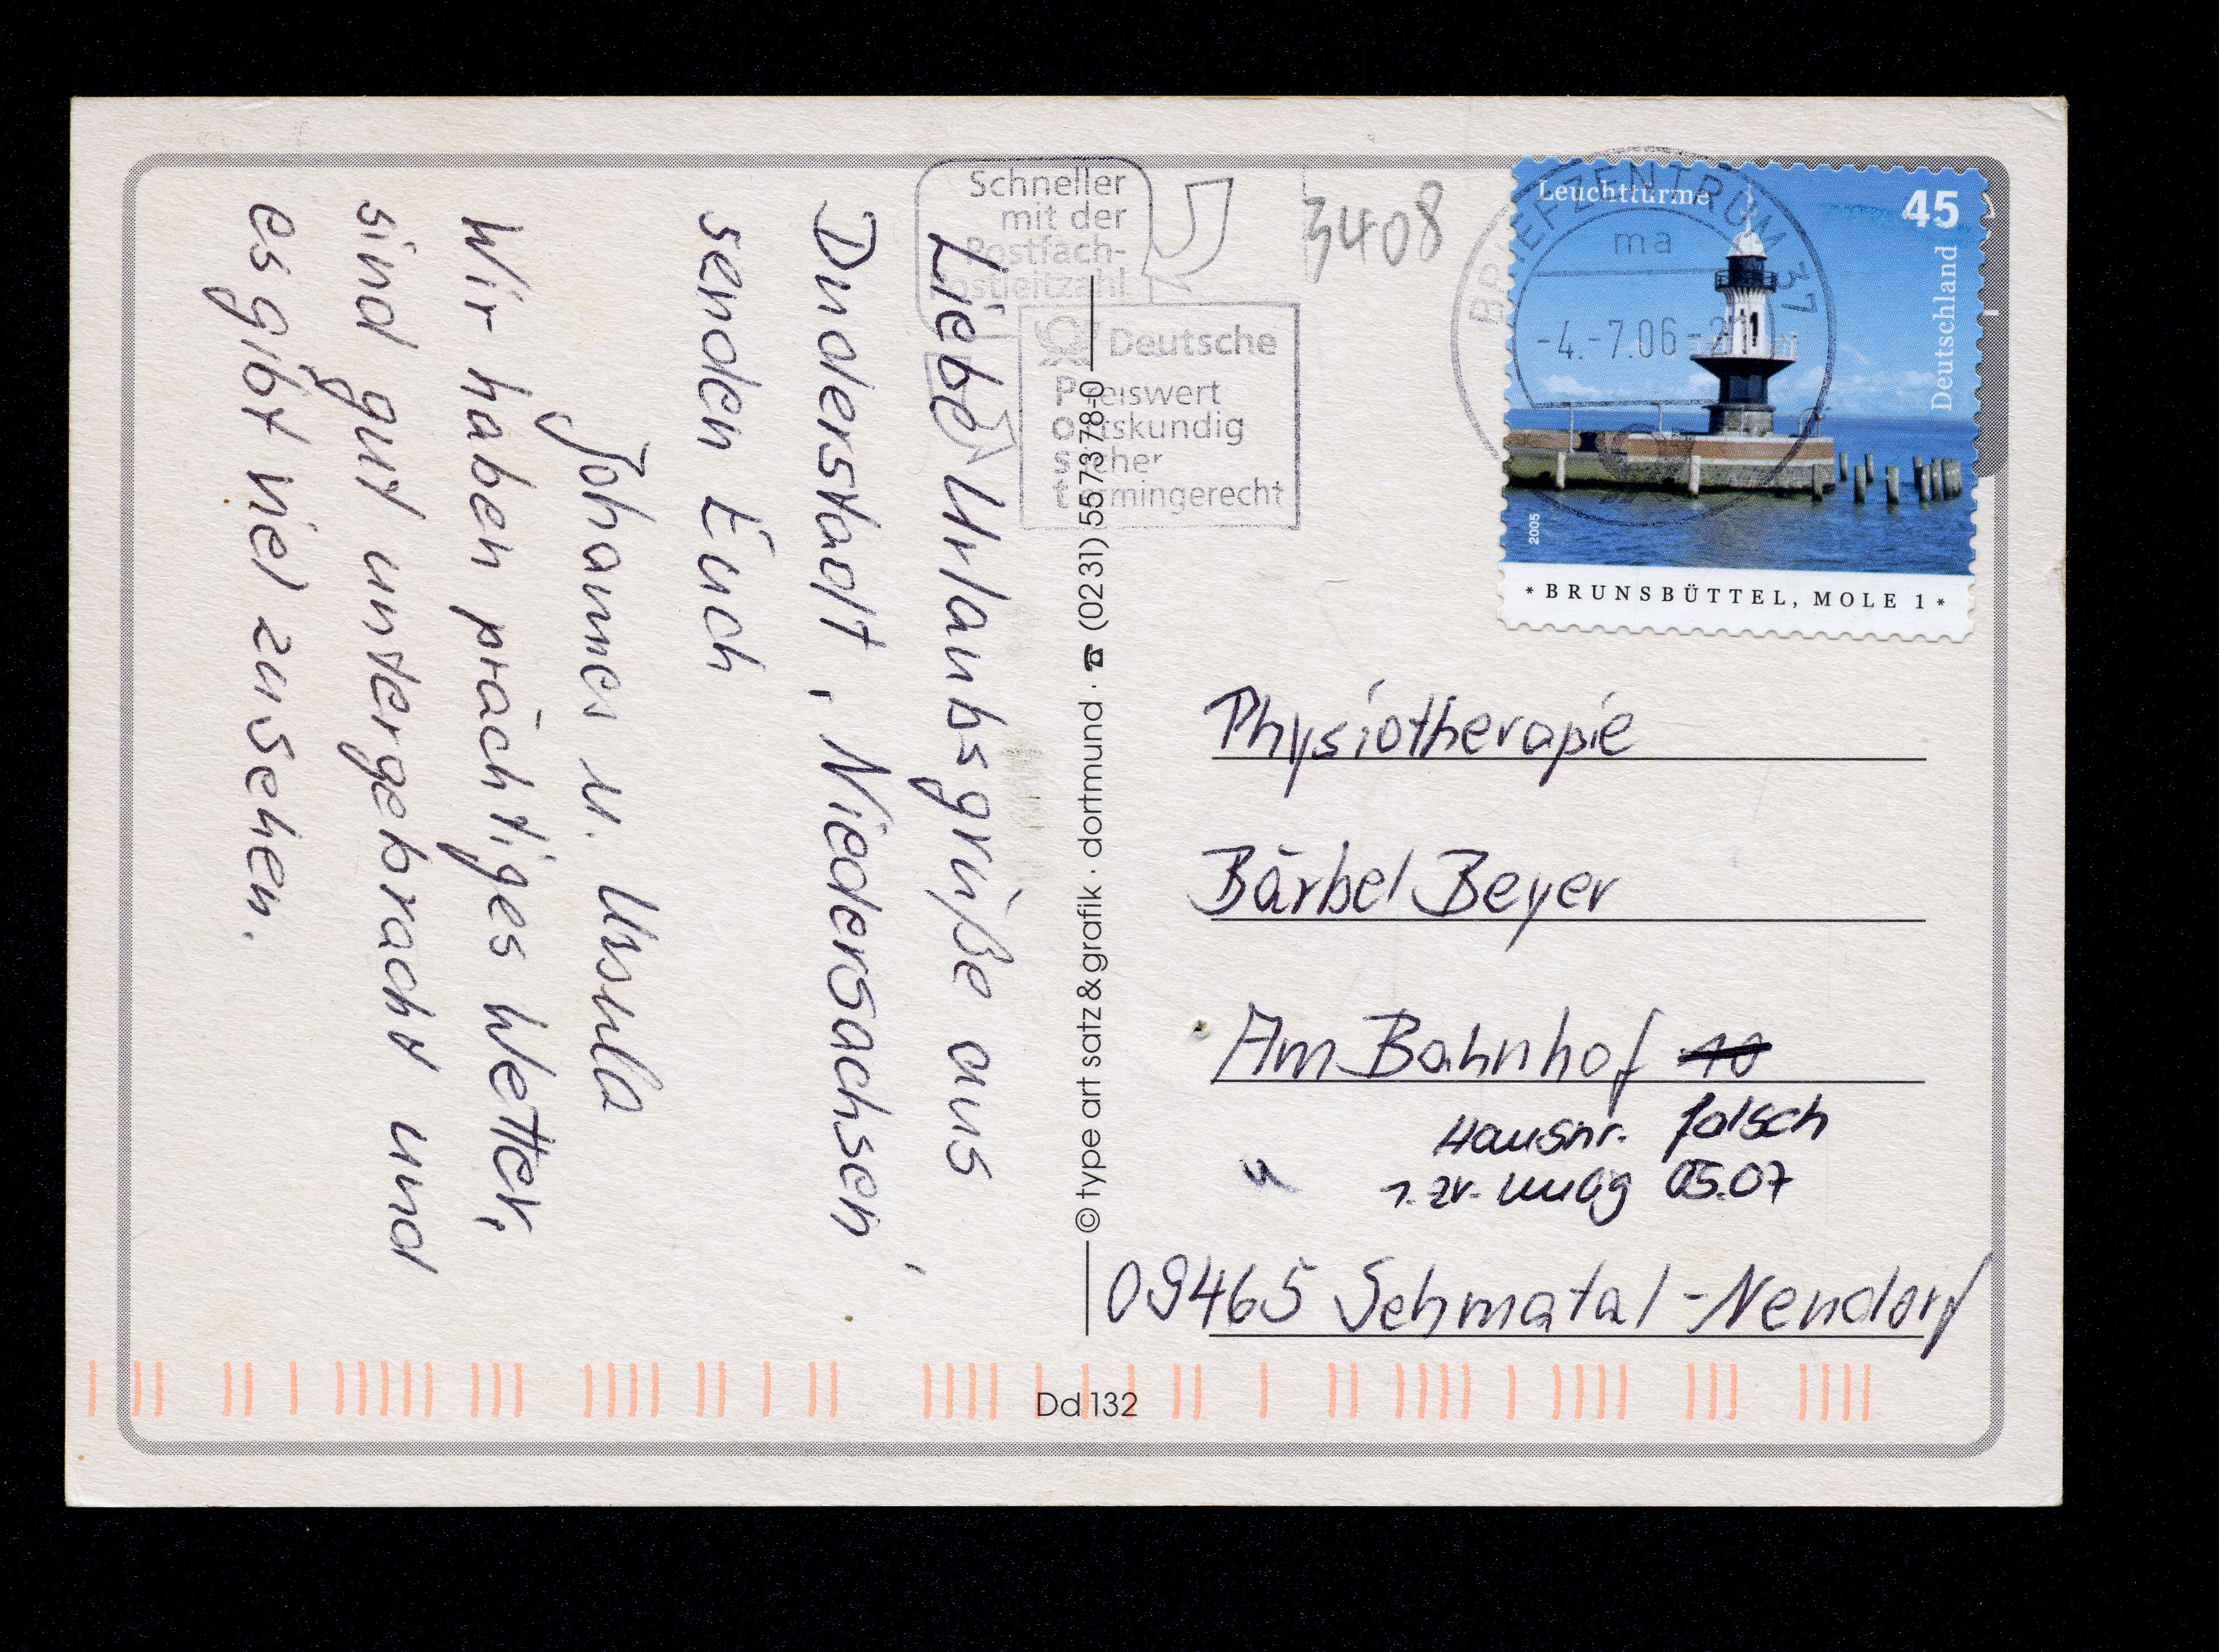 Liebe Urlaubsgrüße aus
Duderstadt, Niedersachsen,
senden Euch
Johannes u. Ursula
Wir haben prächtiges Wetter,
sind gut untergebracht und
es gibt viel zu sehen.
Schneller
mit der
Postfach-
Postleitzahl
Deutsche
Preiswert
Ortskundig
sicher
termingerecht
3408
BRIEFZENTRUM 37
ma
-4.-7.06-21
Leuchttürme
45
Deutschland
2005
* BRUNSBÜTTEL, MOLE 1 *
© type art satz & grafik · dortmund · ☎ (0231) 557378-0
Physiotherapie
Bärbel Beyer
Am Bahnhof 10
Hausnr. falsch
05.07
09465 Sehmatal-Neudorf
Dd 132